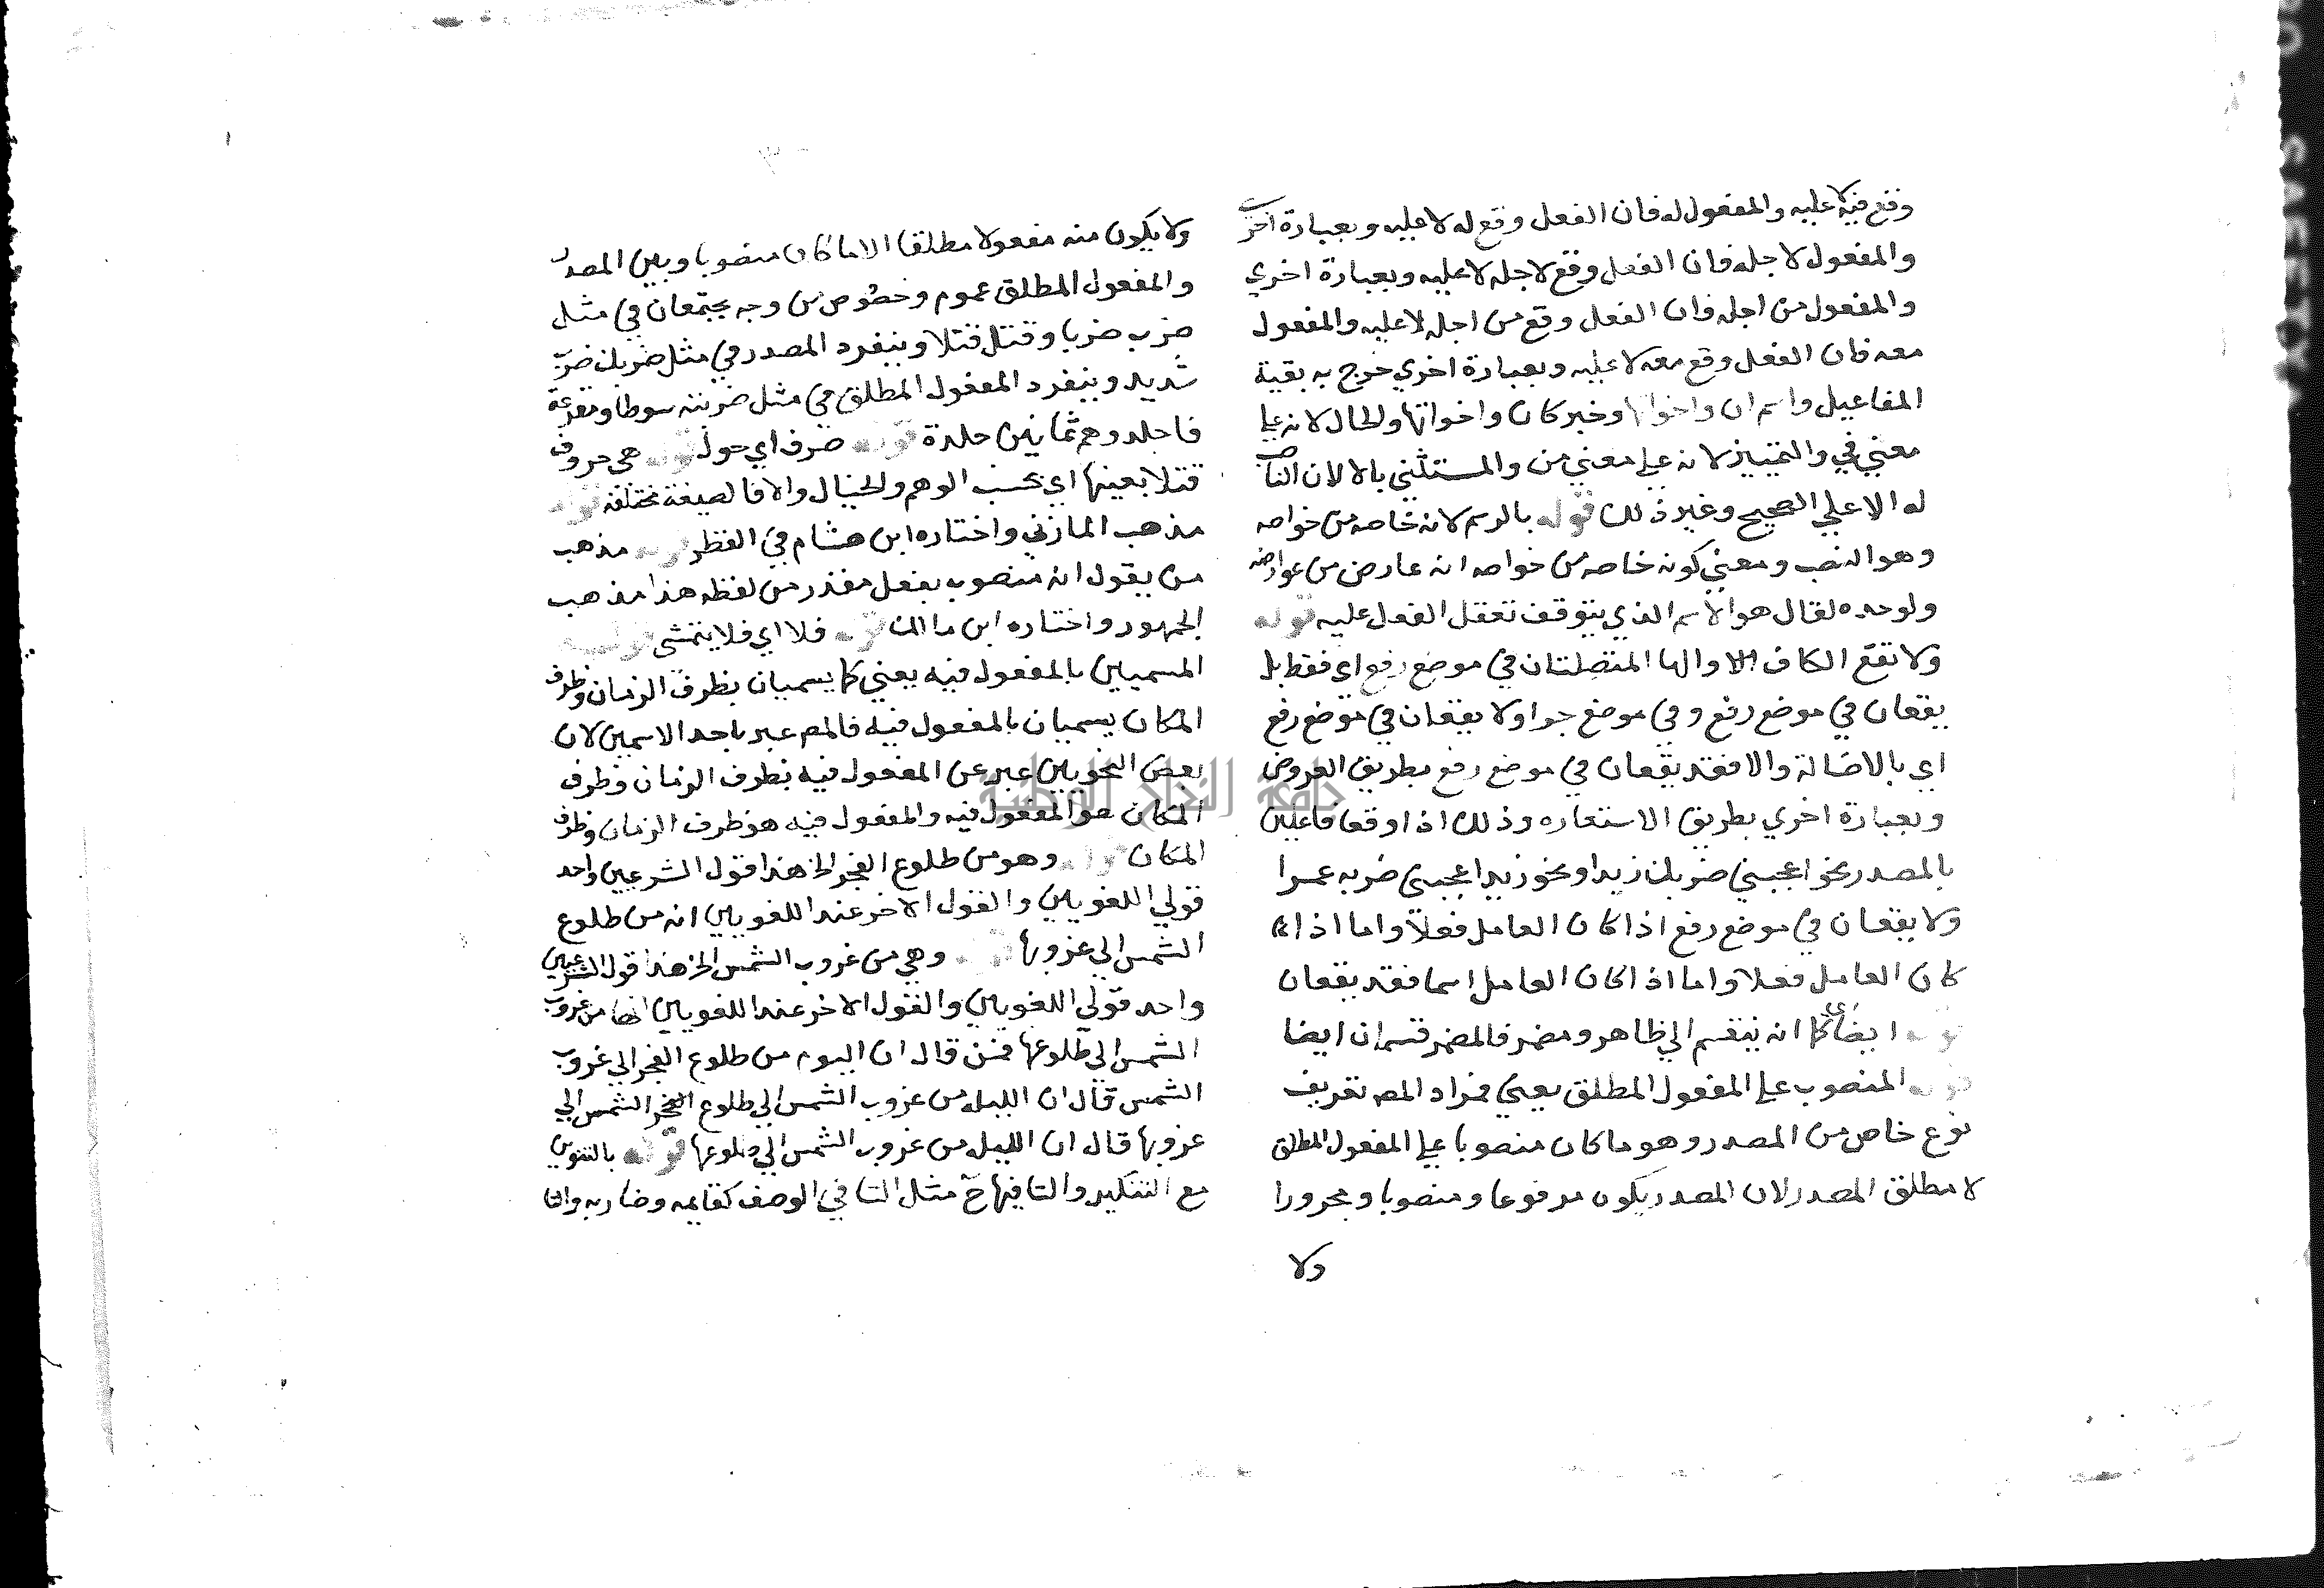 وقع فيه لا عليه والمفعول له فان الفعل وقع له لا عليه وبعبارة اخرى
والمفعول لاجله فان الفعل وقع لاجله لا عليه وبعبارة اخري
والمفعول من اجله فان الفعل وقع من اجله لا عليه والمفعول
معه فان الفعل وقع معه لا عليه وبعبارة اخري خرج به بقية
المفاعيل واسم ان واخواتها وخبر كان واخواتها والحال لانه علي
معني في والتمييز لانه علي معني من والمستثني بالا لان الناصب
له الا علي الصحيح وغير ذلك قوله بالرسم لانه خاصه من خواصه
وهو النصب ومعني كونه خاصه من خواصه انه عارض من عوارضه
ولو حده لقال هو الاسم الذي يتوقف تعقل الفعل عليه قوله
ولا تقع الكاف والها المتصلتان في موضع رفع اي فقط بل
يقعان في موضع رفع وفي موضع جر اولا يقعان في موضع رفع
اي بالاصالة والا فقد يقعان في موضع رفع بطريق العروض
وبعبارة اخري بطريق الاستعاره وذلك اذا وقعا فاعلين
بالمصدر نحو اعجبني ضربك زيدا ونحو زيد اعجبني ضربه عمرا
ولا يقعان في موضع رفع اذا كان العامل فعلا واما اذا
كان العامل فعلا واما اذا كان العامل اسما فقد يقعان
قوله ايضا اي كما انه ينقسم الي ظاهر ومضمر فالمضمر قسمان ايضا
قوله المنصوب علي المفعول المطلق يعني فمراد المص تعريف
نوع خاص من المصدر وهو ما كان منصوبا علي المفعول المطلق
لا مطلق المصدر لان المصدر يكون مرفوعا ومنصوبا ومجرورا
ولا
ولا يكون منه مفعولا مطلقا الا ما كان منصوبا وبين المصدر
والمفعول المطلق عموم وخصوص من وجه يجتمعان في مثل
ضرب ضربا وقتل قتلا وينفرد المصدر في مثل ضربك ضرب
شديد وينفرد المفعول المطلق في مثل ضربته سوطا ومقرعة
فاجلدوهم ثمانين جلدة قوله صرف اي حول قوله هي حروف
قتلا بعينها اي بحسب الوهم والخيال والا فالصيغة مختلفه قوله
مذهب المازني واختاره ابن هشام في القطر قوله مذهب
من يقول انه منصوب بفعل مقدر من لفظه هذا مذهب
الجمهور واختاره ابن مالك قوله فلا اي فلا يتمشى قوله
المسميين بالمفعول فيه يعني كما يسميان بظرف الزمان وظرف
المكان يسميان بالمفعول فيه فالمص عبر باحد الاسمين لان
بعض النحويين عبر عن المفعول فيه بظرف الزمان وظرف
المكان هو المفعول فيه والمفعول فيه هو ظرف الزمان وظرف
المكان قوله وهو من طلوع الفجر الخ هذا قول الشرعيين واحد
قولي اللغويين والقول الاخر عند اللغويين انه من طلوع
الشمس الي غروبها قوله وهي من غروب الشمس الخ هذا قول الشرعيين
واحد قولي اللغويين والقول الاخر عند اللغويين انها من غروب
الشمس الي طلوعها فمن قال ان اليوم من طلوع الفجر الي غروب
الشمس قال ان الليله من غروب الشمس الي طلوع الفجر الشمس الي
غروبها قال ان الليله من غروب الشمس الي طلوعها قوله بالتنوين
مع التنكير والتا فيها ح مثل التا في الوصف كقايمه وضاربه
جامعة النجاح الوطنية